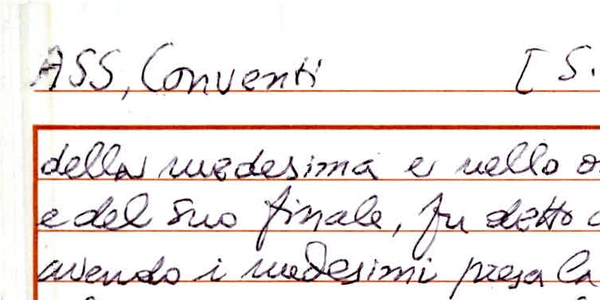 ASS, Conventi [ S.
della medesima e nello
e del suo finale, fu detto
avendo i medesimi presa la